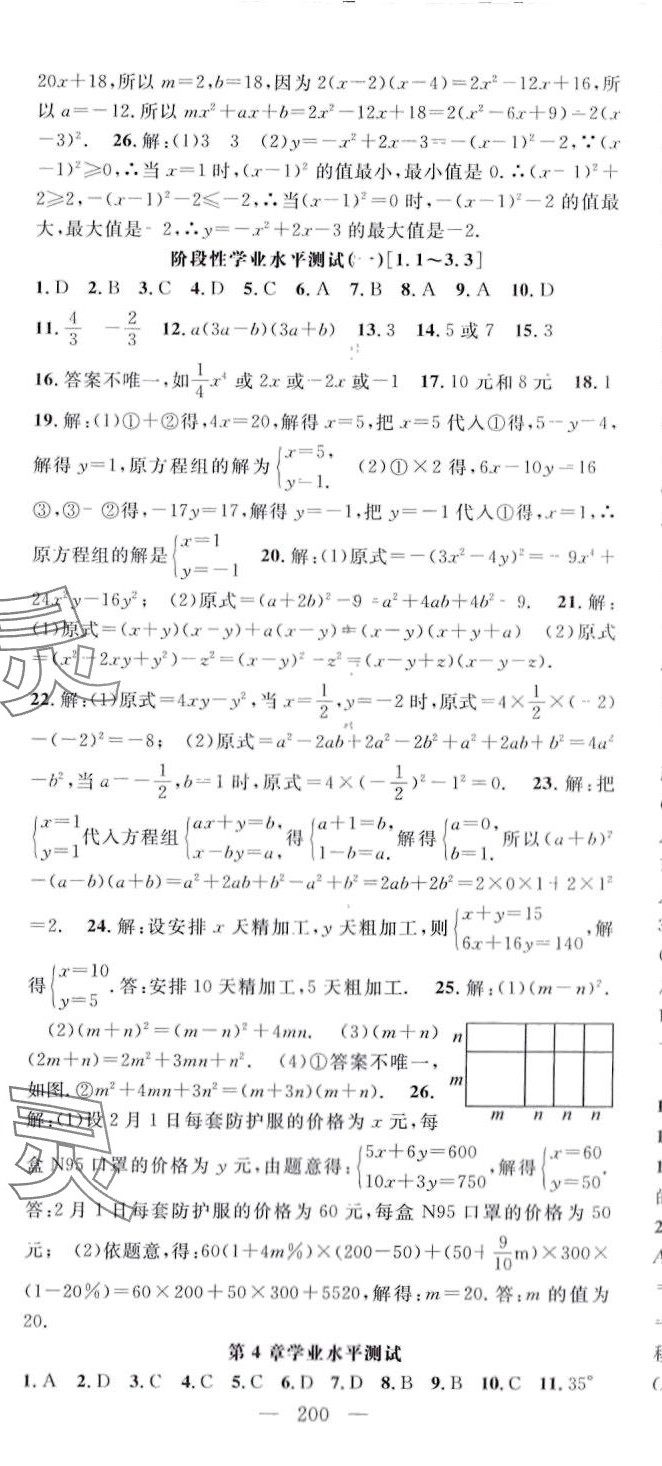 20x+18,所以 m=2,b=18,因为 2(x-2)(x-4)=2x²-12x+16,所
以 a=-12.所以 mx²+ax+b=2x²-12x+18=2(x²-6x+9)=2(x
-3)². 26.解:(1)3 3 (2)y=-x²+2x-3=-(x-1)²-2,∵(x
-1)²≥0,∴当 x=1 时,(x-1)² 的值最小,最小值是 0.∴(x-1)²+
2≥2,-(x-1)²-2≤-2,∴当(x-1)²=0 时,-(x-1)²-2 的值最
大,最大值是-2,∴y=-x²+2x-3 的最大值是-2.
阶段性学业水平测试(一)[1.1~3.3]
1.D 2.B 3.C 4.D 5.C 6.A 7.B 8.A 9.A 10.D
11.4/3 -2/3 12.a(3a-b)(3a+b) 13.3 14.5 或 7 15.3
16.答案不唯一,如1/4x⁴ 或 2x 或-2x 或-1 17.10 元和 8 元 18.1
19.解:(1)①+②得,4x=20,解得 x=5,把 x=5 代入①得,5-y=4,
解得 y=1,原方程组的解为{x=5, y=1. (2)①×2 得,6x-10y=16
③,③-②得,-17y=17,解得 y=-1,把 y=-1 代入①得,x=1,∴
原方程组的解是{x=1 y=-1 20.解:(1)原式=-(3x²-4y)²=-9x⁴+
24x²y-16y²; (2)原式=(a+2b)²-9=a²+4ab+4b²-9. 21.解:
(1)原式=(x+y)(x-y)+a(x-y)=(x-y)(x+y+a) (2)原式
=(x²-2xy+y²)-z²=(x-y)²-z²=(x-y+z)(x-y-z).
22.解:(1)原式=4xy-y²,当 x=1/2,y=-2 时,原式=4×1/2×(-2)
-(-2)²=-8; (2)原式=a²-2ab+2a²-2b²+a²+2ab+b²=4a²
-b²,当 a=-1/2,b=1 时,原式=4×(-1/2)²-1²=0. 23.解:把
{x=1 y=1代入方程组{ax+y=b, x-by=a,得{a+1=b, 1-b=a.解得{a=0, b=1.所以(a+b)²
-(a-b)(a+b)=a²+2ab+b²-a²+b²=2ab+2b²=2×0×1+2×1²
=2. 24.解:设安排 x 天精加工,y 天粗加工,则{x+y=15 6x+16y=140,解
得{x=10 y=5.答:安排 10 天精加工,5 天粗加工. 25.解:(1)(m-n)².
(2)(m+n)²=(m-n)²+4mn. (3)(m+n)
(2m+n)=2m²+3mn+n². (4)①答案不唯一,
如图.②m²+4mn+3n²=(m+3n)(m+n). 26.
n
m
m n n n
解:(1)设 2 月 1 日每套防护服的价格为 x 元,每
盒 N95 口罩的价格为 y 元,由题意得:{5x+6y=600 10x+3y=750,解得{x=60 y=50.
答:2 月 1 日每套防护服的价格为 60 元,每盒 N95 口罩的价格为 50
元; (2)依题意,得:60(1+4m%)×(200-50)+(50+9/10m)×300×
(1-20%)=60×200+50×300+5520,解得:m=20.答:m 的值为
20.
第 4 章学业水平测试
1.A 2.D 3.C 4.C 5.C 6.D 7.D 8.B 9.C 10.C 11.35°
— 200 —
灵
灵